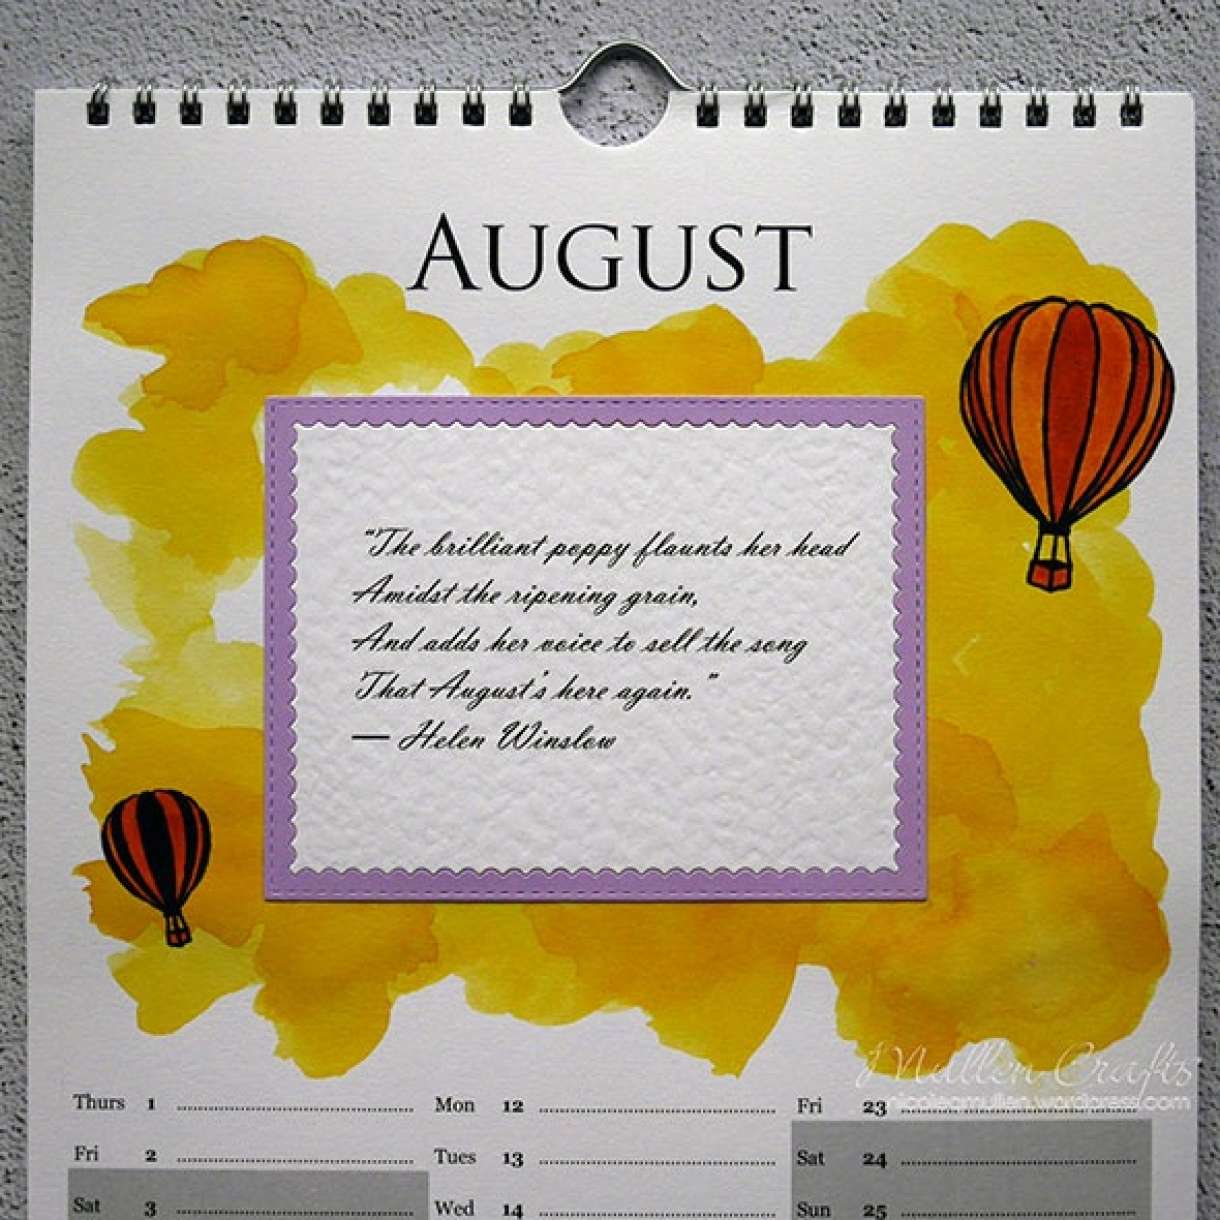 AUGUST
“The brilliant poppy flaunts her head
Amidst the ripening grain,
And adds her voice to sell the song
That August's here again.”
— Helen Winslow
Thurs 1
Fri 2
Sat 3
Mon 12
Tues 13
Wed 14
Fri 23
Sat 24
Sun 25
NMullen Crafts
nicoleamullen.wordpress.com